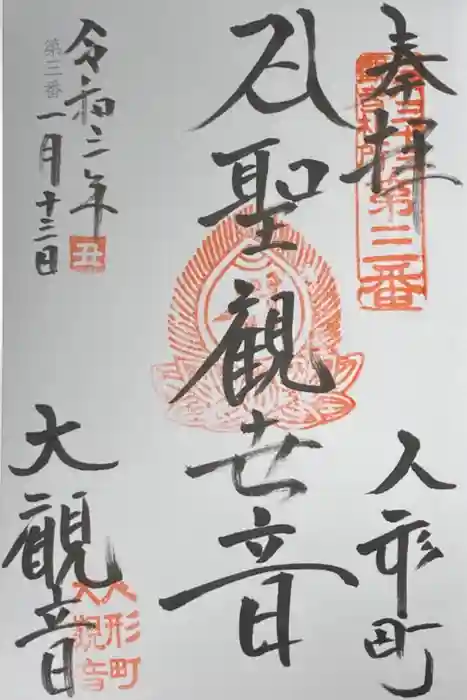 奉拝
第三番
人形町
聖觀世音
令和三年
第三番
一月十三日
丑
大觀音
人形町
大観音